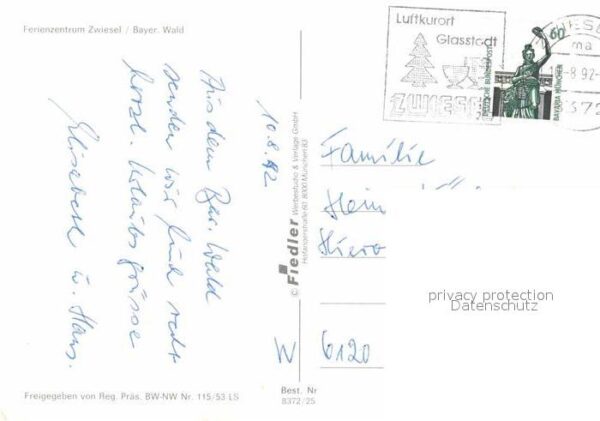 Ferienzentrum Zwiesel / Bayer. Wald
Luftkurort
Glasstadt
ZWIESEL
60
DEUTSCHE BUNDESPOST
BAVARIA MÜNCHEN
-8.92-
572
10.8.92
Aus dem Bay. Wald
senden wir Euch recht
herzl. Urlaubsgrüsse
Elisabeth u. Hans.
© Fiedler Werbestudio & Verlags GmbH
Hofangerstraße 60, 8000 München 83
Familie
Hein
Hiero
W 6120
privacy protection
Datenschutz
Freigegeben von Reg. Präs. BW-NW Nr. 115/53 LS
Best. Nr
8372/25